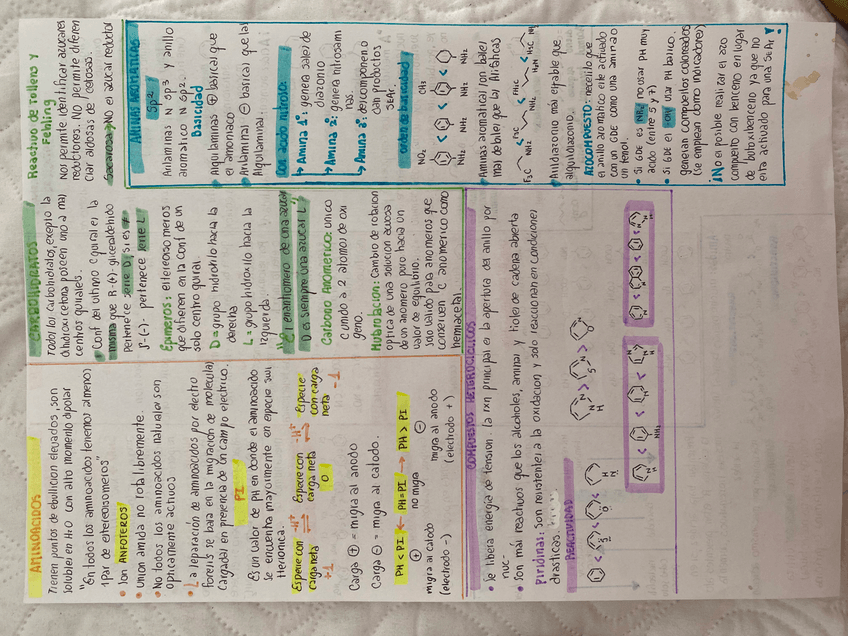 AMINOACIDOS
Tienen puntos de ebullicion elevados, son
solubles en H2O con alto momento dipolar
"En todos los aminoacidos tenemos al menos
1 par de estereoisomeros"
• Son ANFOTEROS
• Union amida no rota libremente
• No todos los aminoacidos naturales son
opticamente activos
• La separación de aminoacidos por electro
foresis se basa en la migración de moleculas
cargadas en presencia de un campo electrico.
PI
Es un valor de PH en donde el aminoacido
se encuentra mayormente en especie swi
tterionica.
Especie con -H+ Especie con -H+ Especie
carga neta carga neta con carga
+1 0 neta -1
Carga ⊕ = migra al anodo
Carga ⊖ = migra al catodo.
PH < PI ← PH = PI → PH > PI
⊕ no migra ⊖
migra al catodo migra al anodo
(electrodo -) (electrodo +)
CARBOHIDRATOS
Todos los carbohidratos, exepto la
dihidroxicetona poseen uno a mas
centros quirales.
• Conf del ultimo C quiral es la
misma que R-(+)-gliceraldehido
pertenece serie D; si es ≠
S-(-)- pertenece serie L.
Epimeros: estereoisomeros
que difieren en la conf de un
solo centro quiral.
D = grupo hidroxilo hacia la
derecha
L = grupo hidroxilo hacia la
izquierda.
"El enantiomero de una azucar
D es siempre una azucar L"
Carbono Anomerico: unico
C unido a 2 atomos de oxi
geno.
Mutorrotacion: cambio de rotacion
optica de una solucion acuosa
de un anomero puro hacia un
valor de equilibrio.
solo valido para anomeros que
conserven C anomerico como
hemiacetal.
Reactivo de Tollens y
Fehling
Nos permite identificar azucares
reductores. No permite diferen
ciar aldosas de cetosas.
Sacarosa → NO es azucar reductor
AMINAS AROMATICAS
SP2
Anilaminas N sp3 y anillo
aromatico N sp2.
Basicidad
Alquilaminas ⊕ basicas que
el amoniaco
Anilaminas ⊖ basicas que las
Alquilaminas.
Con acido nitroso:
→ Amina 1°: genera sales de
diazonio
→ Amina 2°: genera nitrosami
nas.
→ Amina 3°: descomponen o
dan productos
SEAr.
orden de basicidad
NO2 CH3
NH2 < NH2 < NH2 < NH2
Aminas aromaticas son bases
mas debiles que las alifaticas
F3C NH2 < NH2 <
Arildiazonio mas estable que
alquildiazonio.
AZOCOMPUESTO: necesito que
el anillo aromatico este activado
con un GDE como una amina o
un fenol.
• Si GDE es NR2 no usar PH muy
acido (entre 5 y 7)
• Si GDE es OH usar PH basico.
generan compuestos coloreados
(se emplean como indicadores)
¡No es posible realizar el azo
compuesto con benceno en lugar
de ya que no
esta activado para una SEAr!
COMPUESTOS HETEROCICLICOS
• Se libera energia de tension la rxn principal es la apertura del anillo por
nuc-
• Son mas reactivos que los alcoholes, aminas y tioles de cadena abierta
Piridinas: Son resistentes a la oxidacion y solo reaccionan en condiciones
drasticas.
REACTIVIDAD